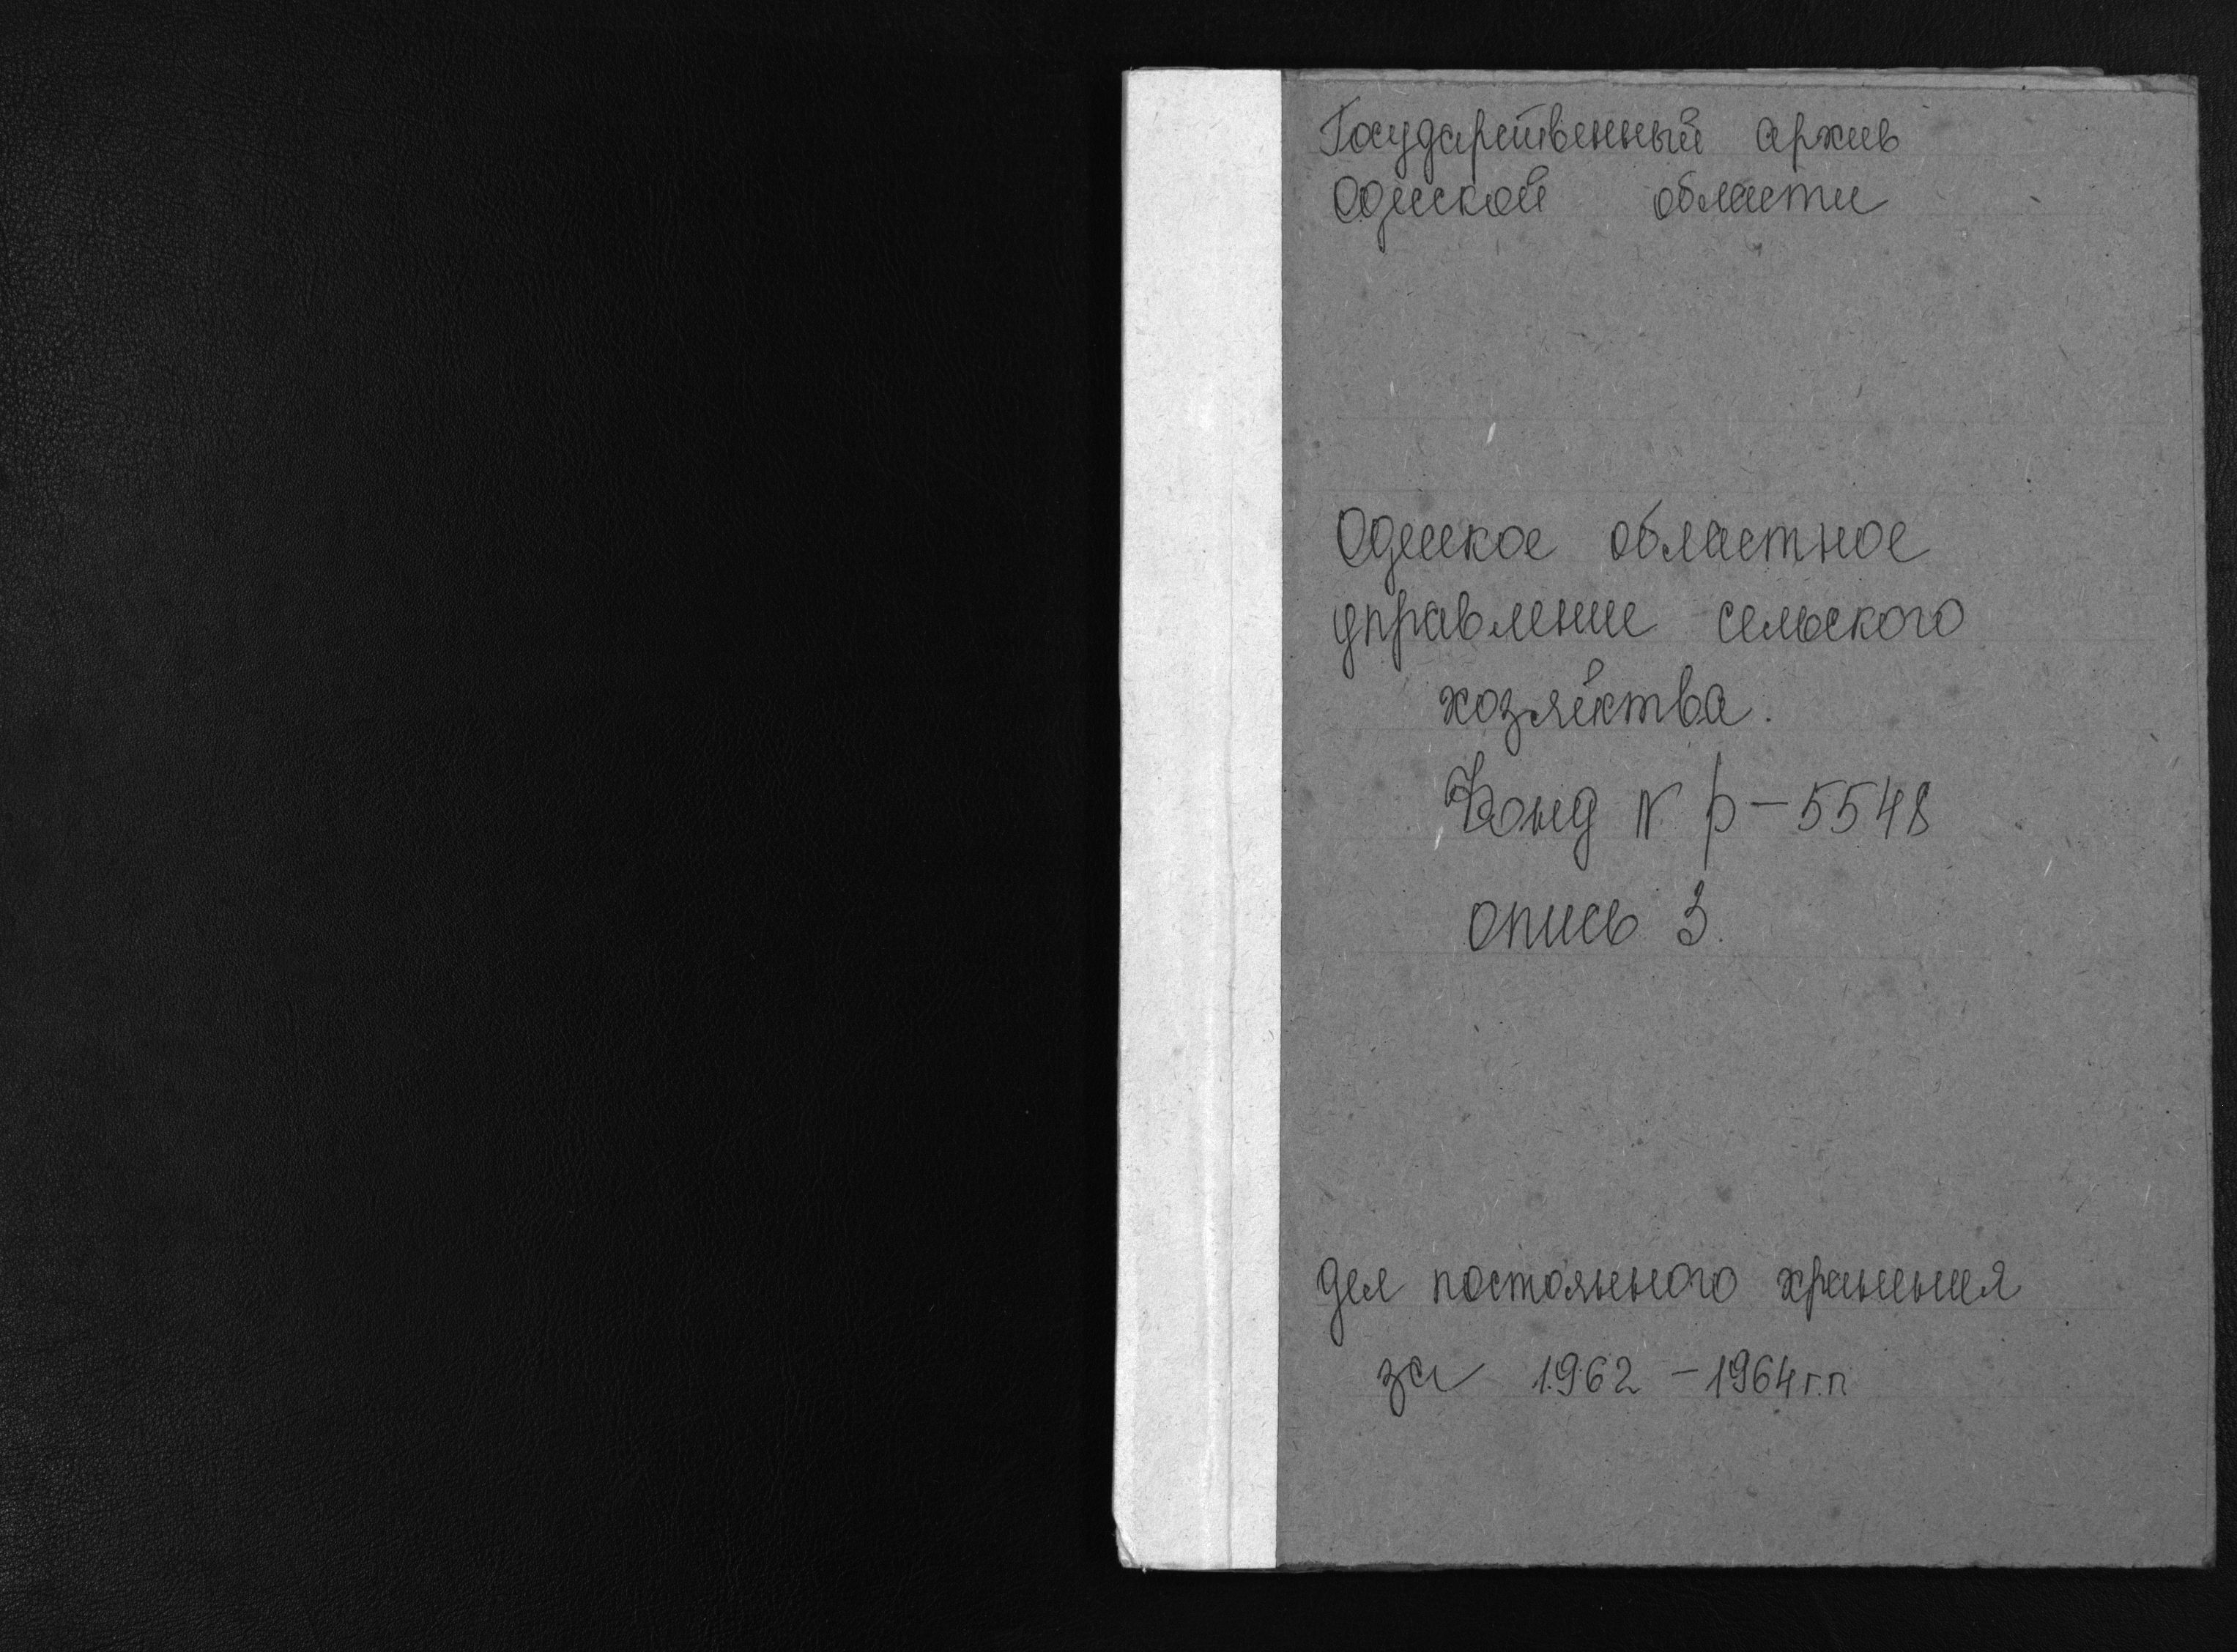 Государственный архив
Одесской области
Одесское областное
управление сельского
хозяйства.
Фонд N р-5548
опись 3.
дел постоянного хранения
за 1962 - 1964 г.г.